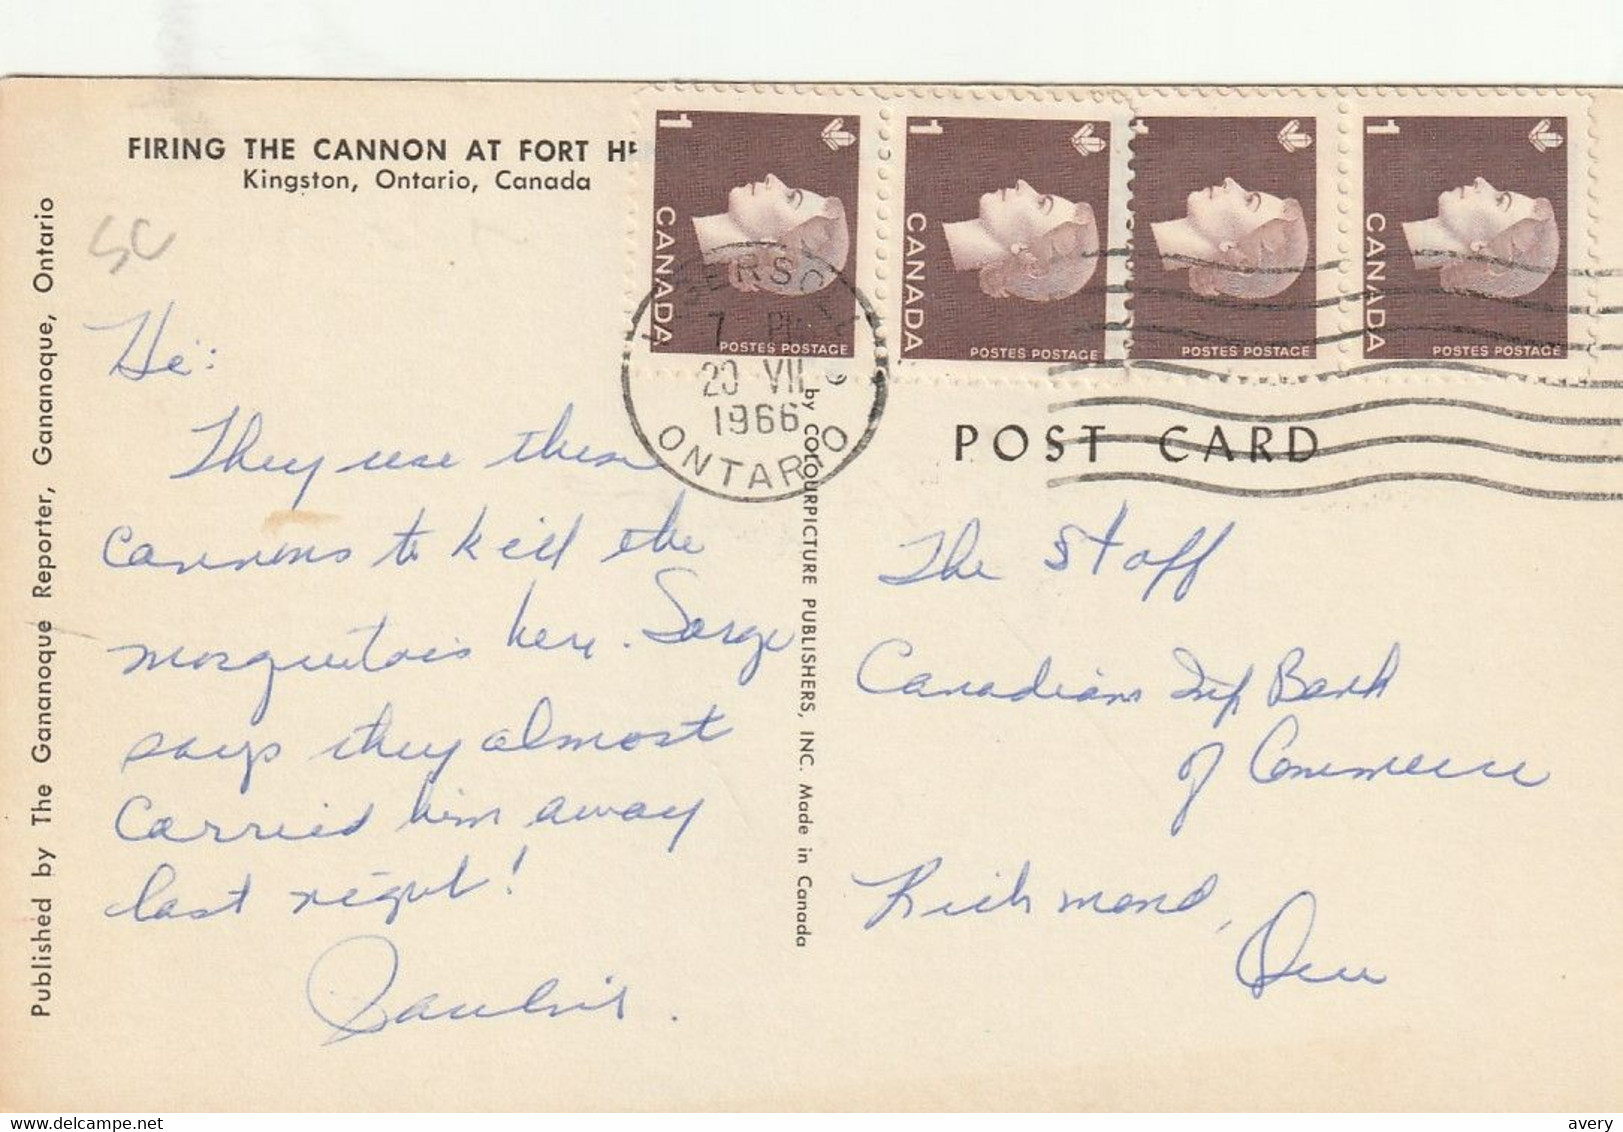 FIRING THE CANNON AT FORT HE
Kingston, Ontario, Canada
SC
Hé:
They use these
cannons to kill the
mosquitois here. Sarge
says they almost
carried him away
last night!
Published by The Gananoque Reporter, Gananoque, Ontario
by COLOURPICTURE PUBLISHERS, INC. Made in Canada
1 CANADA POSTES POSTAGE
1 CANADA POSTES POSTAGE
1 POSTES POSTAGE
1 CANADA POSTES POSTAGE
7 PM
20 VII
1966
ONTARIO
POST CARD
The Staff
Canadian Imp Bank
of Commerce
Richmond,
Que
www.delcampe.net
avery